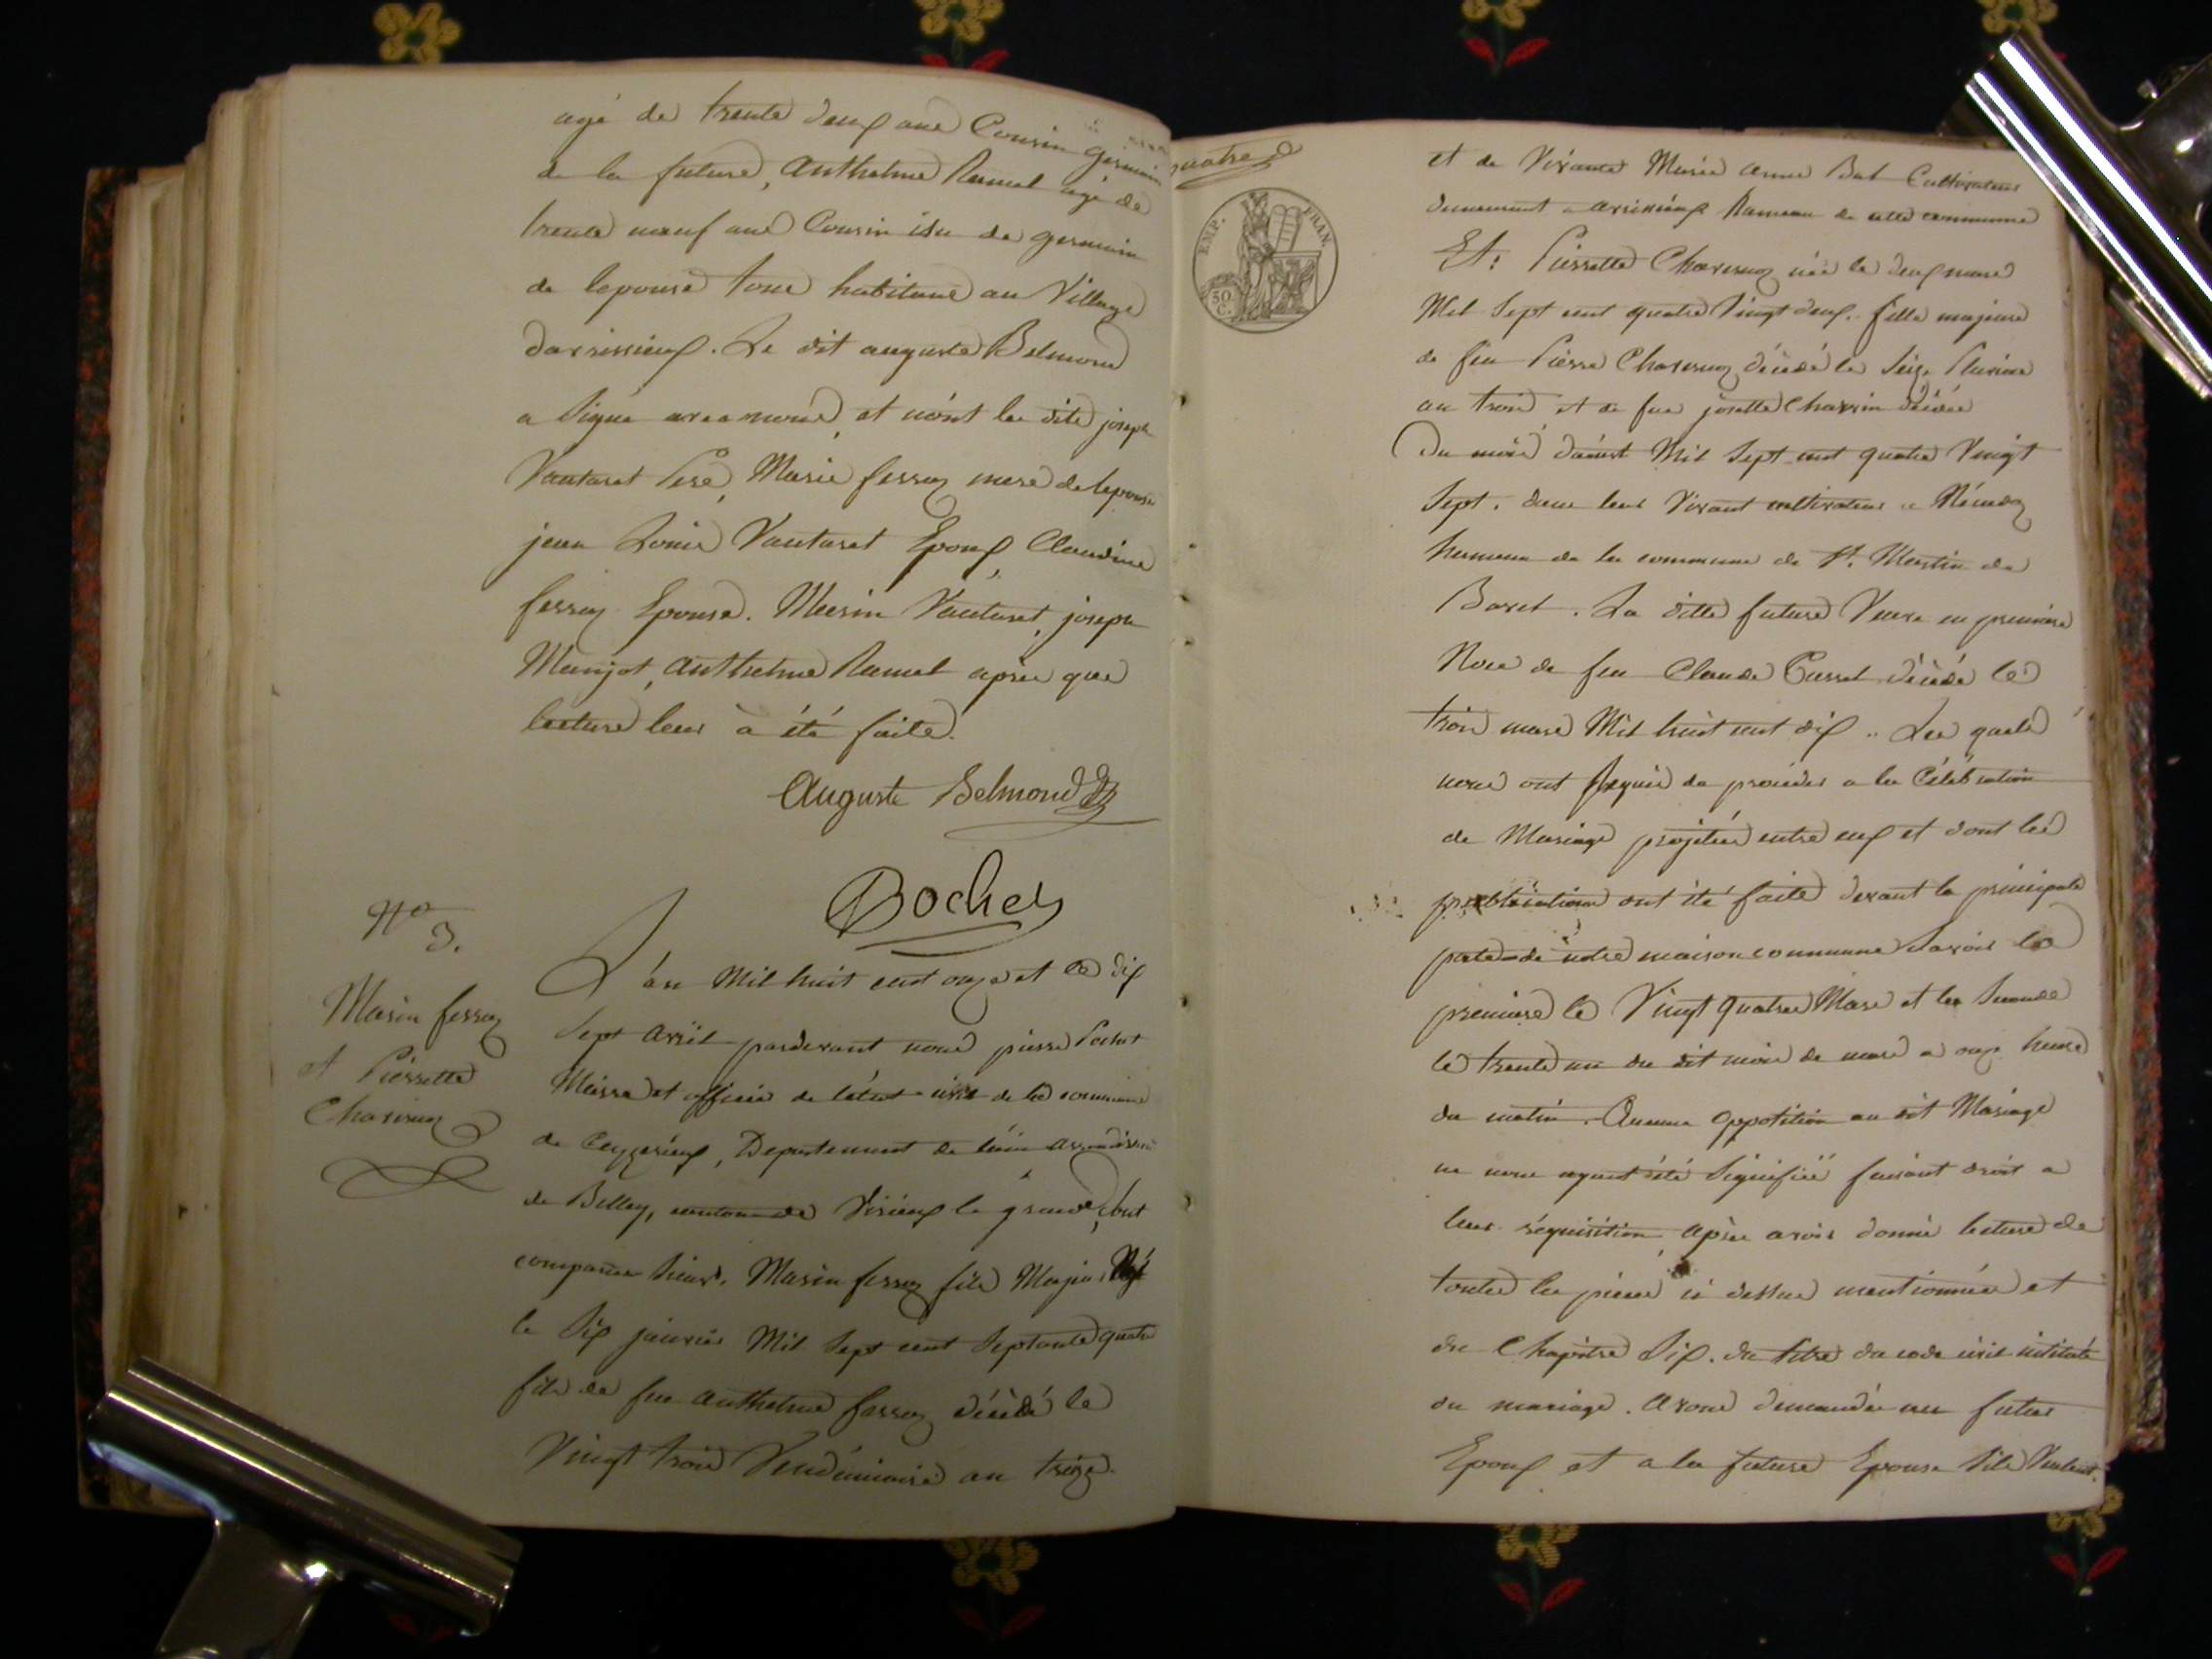 agé de trente deux ans Cousin germain
de la future, Anthelme Ramel agé de
trente neuf ans Cousin isu de germain
de lepouse tous habitans au Village
darsissieux. Le dit auguste Belmond
a Signé avec nous, et nont les dits joseph
Vautaret Pere, Marie ferroz mere de lepouse
jean Louis Vautaret Epoux, Claudine
ferroz Epouse. Marin Vautaret, joseph
Manjot, Anthelme Ramel après que
lecture leur à été faite.
Auguste Belmond
Bochet
No 3.
Marin ferroz
et Pierrette
Charvoz
L'an Mil huit cent onze et le dix
Sept avril pardevant nous pierre Pochet
Maire et officier de l'état civil de la commune
de Ceyzerieux, Departement de l'ain arrondissmt
de Belley, canton de Virieux le grand, sont
comparus Sieur. Marin ferroz fils Majeur Né
le Six janvier Mil Sept cent Septante quatre
fils de feu anthelme ferroz décédé le
Vingt trois Vendémiaire an treize
quatre
EMP. FRAN.
50 C.
et de Vivante Marie anne Bal Cultivateurs
demeurant a arsissieux hameau de cette commune
Et: Pierrette Charvoz née le deux mars
Mil Sept cent quatre Vingt deux. fille majeure
de feu Pierre Charvoz décédé le Seize Pluviose
an trois et de feue josette Charvin décédée
du mois d'aoust Mil Sept cent quatre Vingt
Sept. de leur Vivant cultivateurs a
hameau de la commune de St. Martin de
Bavel. La ditte future Veuve en premiere
Noce de feu Claude Cusset décédé le
trois mars Mil huit cent dix.. Les quels
nous ont Requis de procéder a la Célébration
de Mariage projettée entre eux et dont les
publications ont été faite devant la principale
porte de notre maison commune Savoir la
premiere le Vingt quatre Mars et la Seconde
le trente un du dit mois de mars a onze heures
du matin. Aucune oppotition au dit Mariage
ne nous ayant été Signifiée faisant droit a
leur réquisition, après avoir donné lecture de
toutes les pieces ci dessus mentionnées et
du Chapitre Six. du titre du code civil intitulé
du mariage. avons demandée au futur
Epoux et a la future Epouse Sils Veulent.